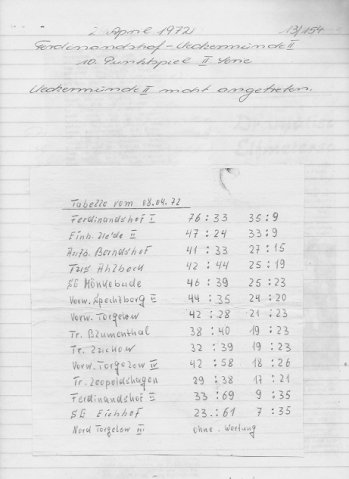 2. April 1972 13/154
Ferdinandshof - Ueckermünde II
10. Punktspiel II Serie
Ueckermünde II nicht angetreten.
Tabelle vom 08.04.72
Ferdinandshof I 76 : 33 35 : 9
Einh. II 47 : 24 33 : 9
Berndshof 41 : 33 27 : 15
Ahlbeck 42 : 44 25 : 19
SG Mönkebude 46 : 39 25 : 23
Vorw. Spechtberg II 44 : 35 24 : 20
Vorw. Torgelow 42 : 28 21 : 23
Tr. Blumenthal 38 : 40 19 : 23
Tr. 32 : 39 19 : 23
Vorw. Torgelow IV 42 : 58 18 : 26
Tr. Leopoldshagen 29 : 38 17 : 21
Ferdinandshof II 33 : 69 9 : 35
SG Eichhof 23 : 61 7 : 35
Nord Torgelow III ohne Wertung